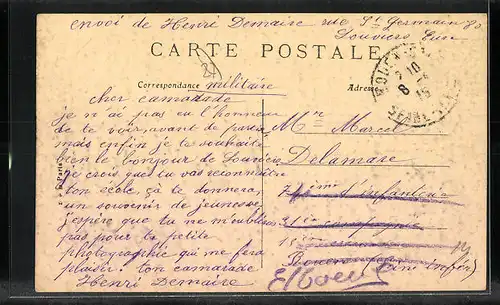 envoi de Henri Demaire rue St Germain
Louviers Eure
CARTE POSTALE
Correspondance militaire
Adresse
cher camarade
je n'ai pas eu l'honneur
de te voir avant de
mais enfin je te souhaite
bien le bonjour de Louviers
je crois que tu vas reconnaitre
ton ecole ça te donnera
un souvenir de jeunesse
j'espère que tu ne m'oublieras
pas pour ta petite
photographie qui me fera
plaisir. ton camarade
Henri Demaire
Mr Marcel
Delamare
74ième d'infanterie
compagnie
Rouen (Seine inférre)
Elboeuf
ROUEN
10
8
15
SEINE